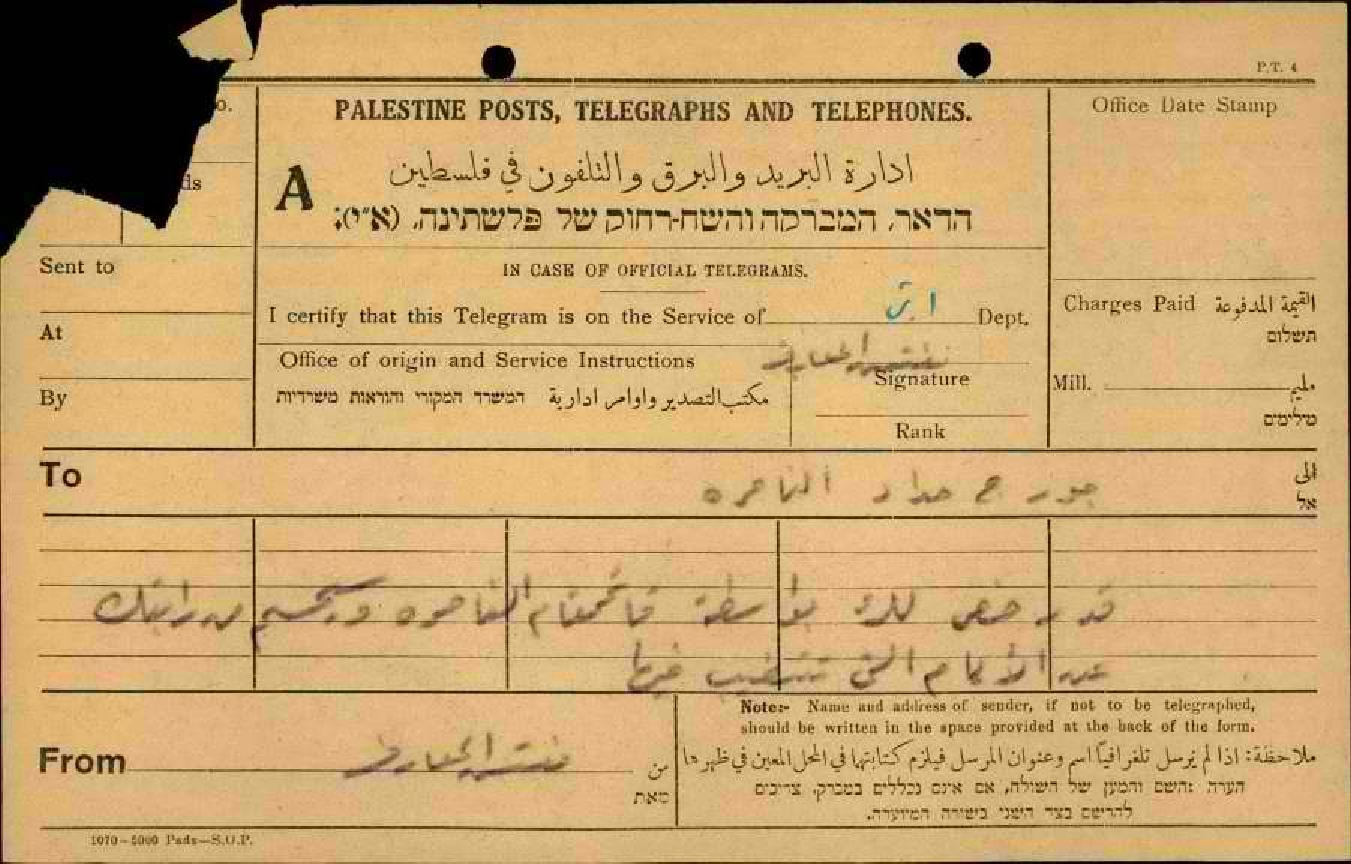 P.T. 4
o.
PALESTINE POSTS, TELEGRAPHS AND TELEPHONES.
Office Date Stamp
ادارة البريد والبرق والتلفون في فلسطين
ds
A
הדאר, המברקה והשח-רחוק של פלשתינה, (א״י);
Sent to
IN CASE OF OFFICIAL TELEGRAMS.
Charges Paid القيمة المدفوعة
I certify that this Telegram is on the Service of Dept.
תשלום
At
Office of origin and Service Instructions
مفتش المعارف
Signature
Mill. مليم
By
مكتب التصدير واوامر ادارية המשרד המקורי והוראות משרדיות
מילימים
Rank
To
جورج حداد الناصره
الى
אל
قد رخص لك بواسطة قائمقام الناصره وسيحسم من راتبك
عن الايام التي تتغيب فيها
Note:- Name and address of sender, if not to be telegraphed,
should be written in the space provided at the back of the form.
From مفتش المعارف من
ملاحظة: اذا لم يرسل تلغرافياً اسم وعنوان المرسل فيلزم كتابتها في المحل المعين في ظهرها
מאת
הערה: השם והמען של השולח, אם אינם נכללים במברק, צריכים
להרשם בצד השני בשורה המיועדה.
1070-5000 Pads-S.O.P.